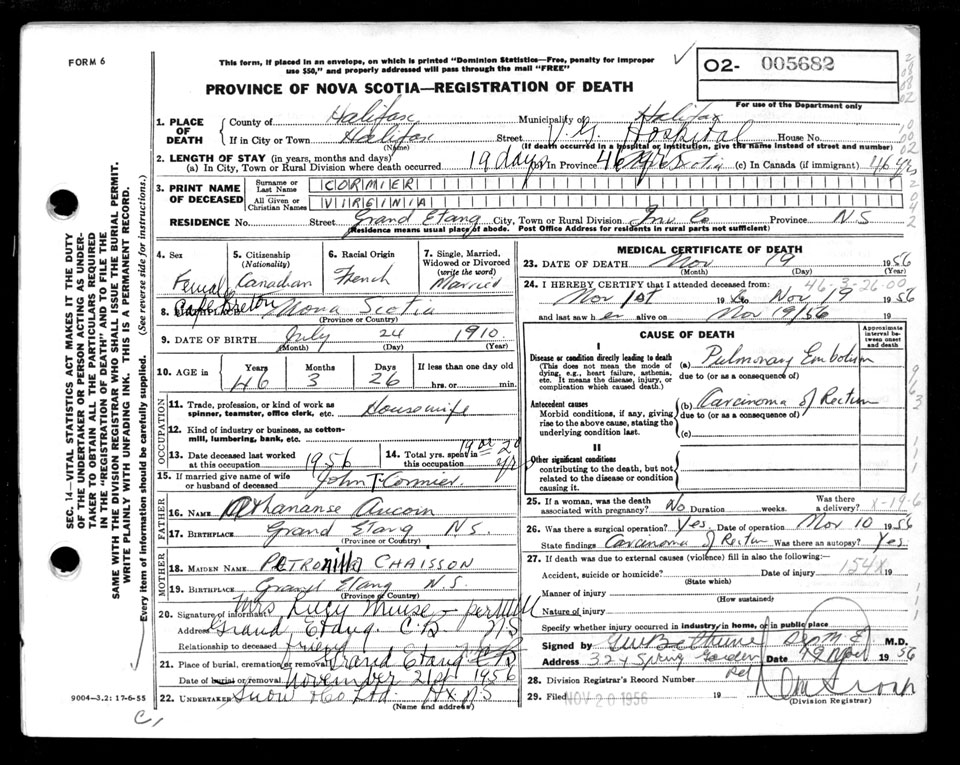 FORM 6
This form, if placed in an envelope, on which is printed "Dominion Statistics—Free, penalty for improper
use $50," and properly addressed will pass through the mail "FREE"
PROVINCE OF NOVA SCOTIA—REGISTRATION OF DEATH
O2- 005682
For use of the Department only
1. PLACE OF DEATH
County of Halifax Municipality of Halifax
If in City or Town Halifax Street V.G. Hospital House No.
(Name) (If death occurred in a hospital or institution, give the name instead of street and number)
2. LENGTH OF STAY (in years, months and days)
(a) In City, Town or Rural Division where death occurred 19 days (b) In Province 46 yrs Scotia (c) In Canada (if immigrant) 46 yrs
3. PRINT NAME OF DECEASED
Surname or Last Name CORMIER
All Given or Christian Names VIRGINIA
RESIDENCE No. Street Grand Etang City, Town or Rural Division Inv Co Province N.S
(Residence means usual place of abode. Post Office Address for residents in rural parts not sufficient)
4. Sex Female
5. Citizenship (Nationality) Canadian
6. Racial Origin French
7. Single, Married, Widowed or Divorced (write the word) Married
8. Cape Breton Nova Scotia
(Province or Country)
9. DATE OF BIRTH July 24 1910
(Month) (Day) (Year)
10. AGE in Years 46 Months 3 Days 26 If less than one day old hrs. or min.
OCCUPATION
11. Trade, profession, or kind of work as spinner, teamster, office clerk, etc. Housewife
12. Kind of industry or business, as cotton-mill, lumbering, bank, etc.
13. Date deceased last worked at this occupation 1956
14. Total yrs. spent in this occupation 19 or 20 yrs
15. If married give name of wife or husband of deceased John T Cormier
FATHER
16. NAME Athananse Aucoin
17. BIRTHPLACE Grand Etang N.S.
(Province or Country)
MOTHER
18. MAIDEN NAME PETRONILLE CHAISSON
19. BIRTHPLACE Grand Etang N.S.
(Province or Country)
20. Signature of informant Mrs Lucy Muise - per
Address Grand Etang. C.B N/S
Relationship to deceased Friend
21. Place of burial, cremation or removal Grand Etang CB
Date of burial or removal November 21st 1956
22. UNDERTAKER Snow & Co Ltd. Hx N/S
(Name and address)
MEDICAL CERTIFICATE OF DEATH
23. DATE OF DEATH Nov 19 1956
(Month) (Day) (Year)
46-3-26-00
24. I HEREBY CERTIFY that I attended deceased from:
Nov 1st 19 to Nov 19 1956
and last saw her alive on Nov 19/56 19
CAUSE OF DEATH
Approximate interval between onset and death
I
Disease or condition directly leading to death
(This does not mean the mode of dying, e.g., heart failure, asthenia, etc. It means the disease, injury, or complication which caused death.)
(a) Pulmonary Embolism
due to (or as a consequence of)
Antecedent causes
Morbid conditions, if any, giving rise to the above cause, stating the underlying condition last.
(b) Carcinoma of Rectum
due to (or as a consequence of)
(c)
II
Other significant conditions
contributing to the death, but not related to the disease or condition causing it.
25. If a woman, was the death associated with pregnancy? No Duration weeks Was there a delivery?
26. Was there a surgical operation? Yes Date of operation Nov 10 1956
State findings Carcinoma of Rectum Was there an autopsy? Yes.
27. If death was due to external causes (violence) fill in also the following:—
Accident, suicide or homicide? Date of injury 19
154X
(State which)
Manner of injury
(How sustained)
Nature of injury
Specify whether injury occurred in industry, in home, or in public place
Signed by M.D.
Address 324 Spring Garden Rd Date 19 Nov 1956
28. Division Registrar's Record Number
29. Filed NOV 20 1956 19
(Division Registrar)
SEC. 14—VITAL STATISTICS ACT MAKES IT THE DUTY
OF THE UNDERTAKER OR PERSON ACTING AS UNDER-
TAKER TO OBTAIN ALL THE PARTICULARS REQUIRED
IN THE "REGISTRATION OF DEATH" AND TO FILE THE
SAME WITH THE DIVISION REGISTRAR WHO SHALL ISSUE THE BURIAL PERMIT.
WRITE PLAINLY WITH UNFADING INK. THIS IS A PERMANENT RECORD.
Every item of information should be carefully supplied. (See reverse side for instructions.)
9004—3.2: 17-6-55